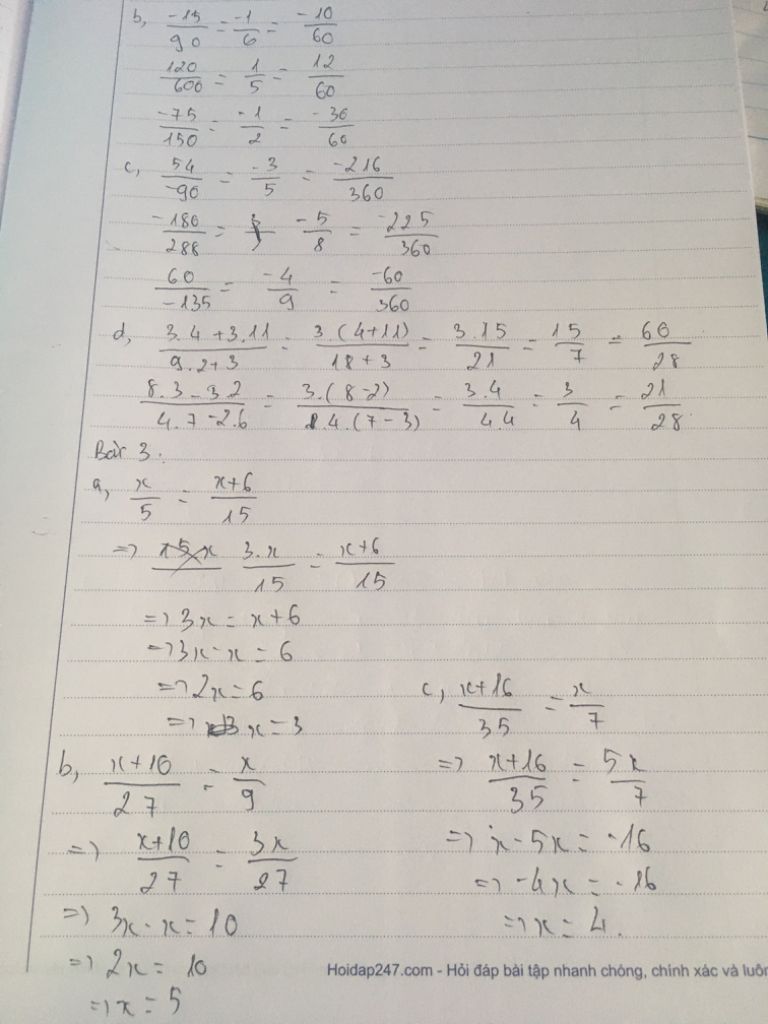 b, -15/90 = -1/6 = -10/60
120/600 = 1/5 = 12/60
-75/150 = -1/2 = -30/60
c, 54/-90 = -3/5 = -216/360
-180/288 = -5/8 = -225/360
60/-135 = -4/9 = -60/360
d, 3.4+3.11/9.2+3 = 3.(4+11)/18+3 = 3.15/21 = 15/7 = 60/28
8.3-3.2/4.7-2.6 = 3.(8-2)/4.(7-3) = 3.4/4.4 = 3/4 = 21/28
Bài 3.
a, x/5 = x+6/15
=> 3.x/15 = x+6/15
=> 3x = x+6
=> 3x-x = 6
=> 2x = 6
=> x = 3
b, x+10/27 = x/9
=> x+10/27 = 3x/27
=> 3x-x = 10
=> 2x = 10
=> x = 5
c, x+16/35 = x/7
=> x+16/35 = 5x/7
=> x-5x = -16
=> -4x = -16
=> x = 4.
Hoidap247.com - Hỏi đáp bài tập nhanh chóng, chính xác và luôn